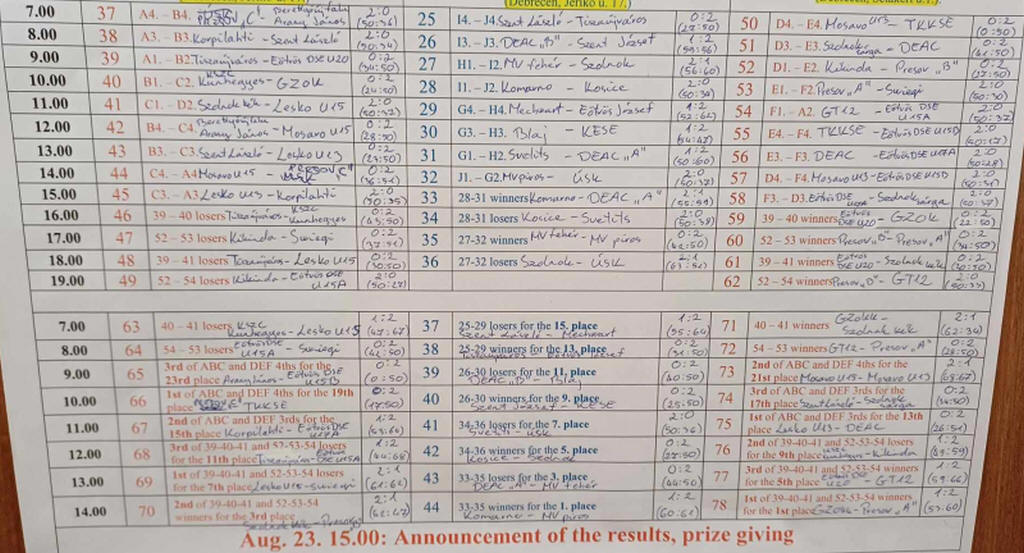 (Debrecen, Jerikó u. 17.)
7.00 37 A4. - B4. PRESOV "C" - Berettyóújfalu Arany János 2:0 (50:36) 25 I4. – J4. Szent László - Tiszaújváros 0:2 (27:50) 50 D4. – E4. Mosaro U13 - TKKSE 0:2 (0:50)
8.00 38 A3. – B3. Korpilahti - Szent László 2:0 (50:34) 26 I3. – J3. DEAC "B" - Szent József 1:2 (59:56) 51 D3. – E3. Szolnok sárga - DEAC 0:2 (41:50)
9.00 39 A1. – B2. Tiszaújváros - Eötvös DSE U20 0:2 (34:50) 27 H1. – I2. MV fehér - Szolnok 2:1 (56:60) 52 D1. – E2. Kikinda - Presov "B" 0:2 (27:50)
10.00 40 B1. – C2. KSZC Kunhegyes - GZOK 0:2 (24:50) 28 I1. – J2. Komarno - Kosice 2:0 (50:34) 53 E1. – F2. Presov "A" - Suriegi 2:0 (50:30)
11.00 41 C1. – D2. Szolnok kék - Lesko U15 2:0 (50:32) 29 G4. – H4. Mechwart - Eötvös József 1:2 (52:62) 54 F1. – A2. GT12 - Eötvös DSE U15A 2:0
12.00 42 B4. – C4. Berettyóújfalu Arany János - Mosaro U15 0:2 (28:50) 30 G3. – H3. Blaj - KESE 1:2 (54:47) 55 E4. – F4. TKKSE - Eötvös DSE U15D 2:0
13.00 43 B3. – C3. Szent László - Lesko U13 0:2 (29:50) 31 G1. – H2. Svetits - DEAC "A" 1:2 (50:60) 56 E3. – F3. DEAC - Eötvös DSE U17A 2:0 (50:28)
14.00 44 C4. – A4. Mosaro U15 - PRESOV "C" 0:2 (36:51) 32 J1. – G2. MV piros - ÚSK 2:0 (50:37) 57 D4. – F4. Mosaro U13 - Eötvös DSE U15D 2:0 (50:31)
15.00 45 C3. – A3. Lesko U13 - Korpilahti 2:0 (50:35) 33 28-31 winners Komarno - DEAC "A" 2:1 (55:59) 58 F3. – D3. Eötvös DSE - Szolnok sárga 0:2
16.00 46 39 – 40 losers Tiszaújváros - KSZC Kunhegyes 0:2 (45:50) 34 28-31 losers Kosice - Svetits 2:0 (50:38) 59 39 – 40 winners Eötvös DSE U20 - GZOK 0:2 (22:50)
17.00 47 52 – 53 losers Kikinda - Suriegi 0:2 (37:51) 35 27-32 winners MV fehér - MV piros 0:2 (42:50) 60 52 – 53 winners Presov "B" - Presov "A" 0:2 (34:50)
18.00 48 39 – 41 losers Tiszaújváros - Lesko U15 0:2 (30:50) 36 27-32 losers Szolnok - ÚSK 2:1 (63:51) 61 39 – 41 winners Eötvös DSE U20 - Szolnok kék 0:2 (30:50)
19.00 49 52 – 54 losers Kikinda - Eötvös DSE U15A 2:0 (50:27) 62 52 – 54 winners Presov "B" - GT12 2:0
7.00 63 40 – 41 losers KSZC Kunhegyes - Lesko U15 1:2 (47:67) 37 25-29 losers for the 15. place Szent László - Mechwart 1:2 (55:64) 71 40 – 41 winners GZOK - Szolnok kék 2:1 (62:34)
8.00 64 54 – 53 losers Eötvös DSE U15A - Suriegi 0:2 (42:50) 38 25-29 winners for the 13. place Tiszaújváros - Eötvös József 0:2 (31:50) 72 54 – 53 winners GT12 - Presov "A" 0:2 (28:50)
9.00 65 3rd of ABC and DEF 4ths for the 23rd place Arany János - Eötvös DSE U15D 0:2 (0:50) 39 26-30 losers for the 11. place DEAC "B" - Blaj 0:2 (40:50) 73 2nd of ABC and DEF 4ths for the 21st place Mosaro U15 - Mosaro U13 2:1 (65:67)
10.00 66 1st of ABC and DEF 4ths for the 19th place TKKSE 0:2 (17:50) 40 26-30 winners for the 9. place Szent József - KESE 0:2 (25:50) 74 3rd of ABC and DEF 3rds for the 17th place Szent László - Szolnok sárga 0:2 (34:50)
11.00 67 2nd of ABC and DEF 3rds for the 15th place Korpilahti - Eötvös DSE U17A 1:2 41 34-36 losers for the 7. place Svetits - ÚSK 2:0 (50:36) 75 1st of ABC and DEF 3rds for the 13th place Lesko U13 - DEAC 0:2 (26:51)
12.00 68 3rd of 39-40-41 and 52-53-54 losers for the 11th place Tiszaújváros - Eötvös DSE U15A 1:2 (44:68) 42 34-36 winners for the 5. place Kosice - Szolnok 0:2 (27:50) 76 2nd of 39-40-41 and 52-53-54 losers for the 9th place Kunhegyes - Kikinda 1:2 (49:59)
13.00 69 1st of 39-40-41 and 52-53-54 losers for the 7th place Lesko U15 - Suriegi 2:1 (61:62) 43 33-35 losers for the 3. place DEAC "A" - MV fehér 0:2 (44:50) 77 3rd of 39-40-41 and 52-53-54 winners for the 5th place Eötvös DSE U20 - GT12 1:2 (59:66)
14.00 70 2nd of 39-40-41 and 52-53-54 winners for the 3rd place Szolnok kék - Presov 2:1 (62:47) 44 33-35 winners for the 1. place Komarno - MV piros 1:2 (60:61) 78 1st of 39-40-41 and 52-53-54 winners for the 1st place GZOK - Presov "A" 1:2 (57:60)
Aug. 23. 15.00: Announcement of the results, prize giving